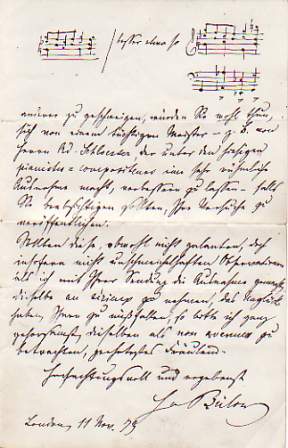 besser etwa so
anderer zu geschweigen, würden Sie wohl thun,
sich von einem tüchtigen Meister – z. B. von
Herrn Ad. Schloesser, der unter den hiesigen
pianistes-compositeurs eine sehr rühmliche
Ausnahme macht, verbessern zu lassen – falls
Sie beabsichtigen sollten, Ihre Versuche zu
veröffentlichen.
Sollten diese, obwohl nicht galanten, doch
insofern nicht unschmeichelhaften Observationen
als ich mit Ihrer Sendung die Ausnahme gemacht
dieselbe an zu nehmen, das Unglück
haben, Ihnen zu mißfallen, so bitte ich ganz
gehorsamst, dieselben als non avenues zu
betrachten, geehrtestes Fräulein.
Hochachtungsvoll und ergebenst
Bülow
London, 11 Nov. 78